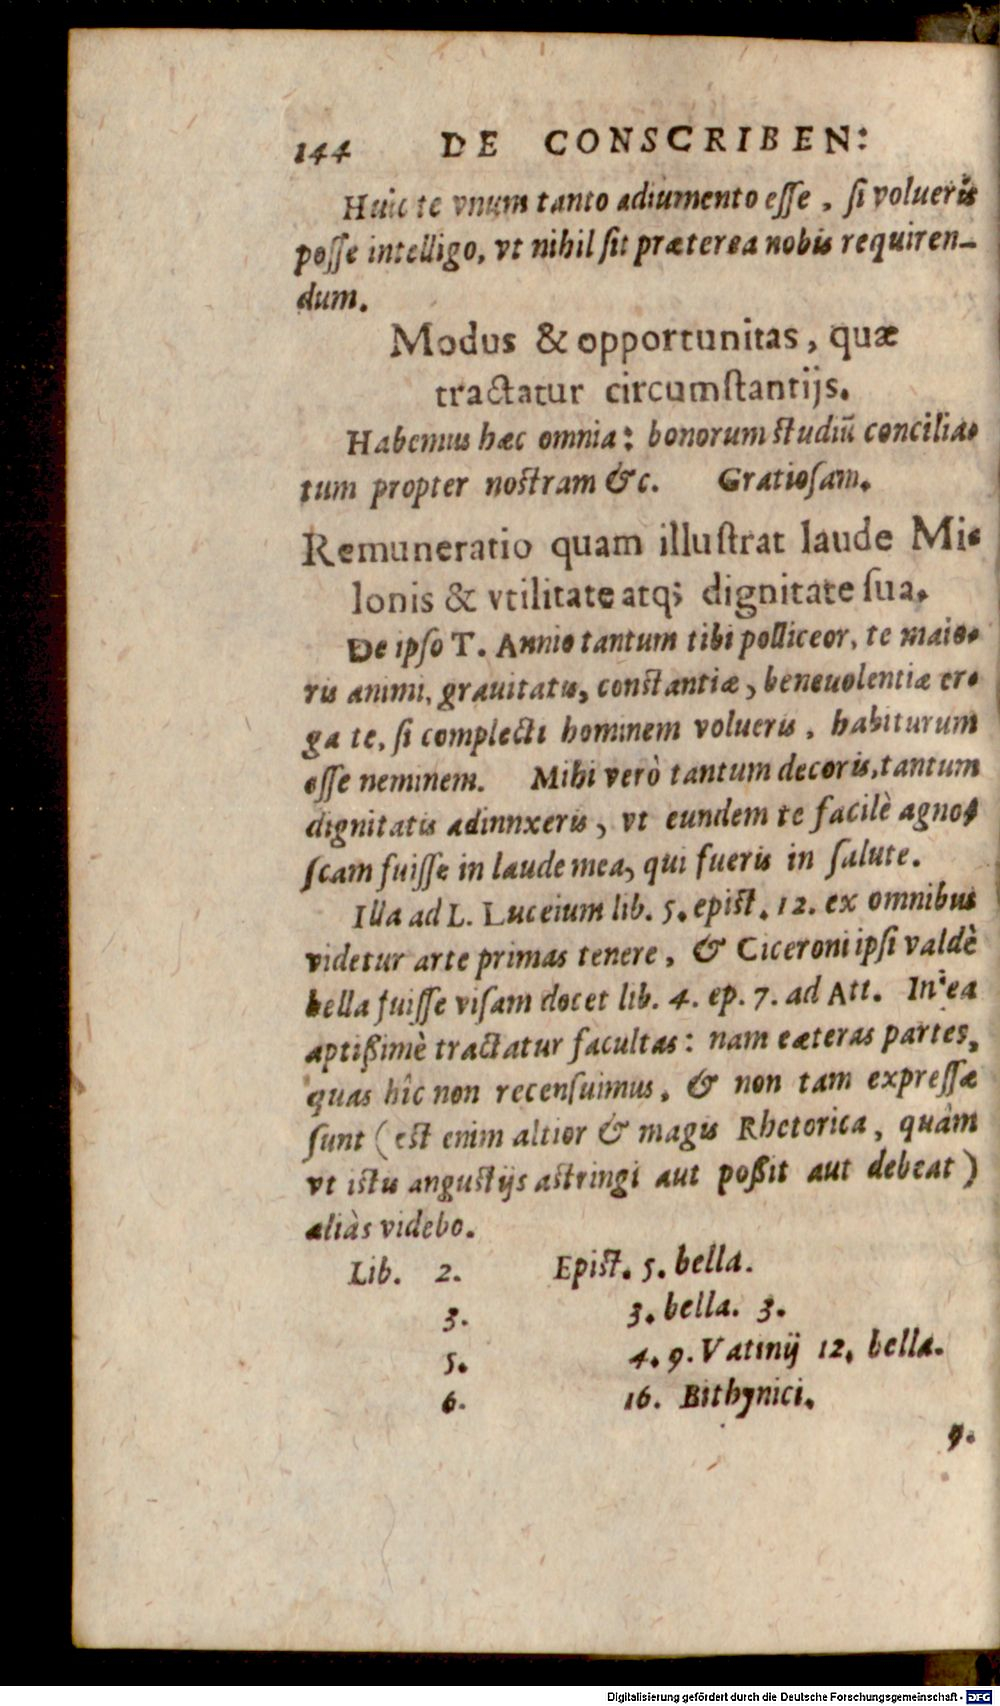 144 DE CONSCRIBEN:
Huic te vnum tanto adiumento esse, si volueris
posse intelligo, vt nihil sit præterea nobis requiren-
dum.
Modus & opportunitas, quæ
tractatur circumstantijs.
Habemus hæc omnia: bonorum studiū concilia-
tum propter nostram &c. Gratiosam.
Remuneratio quam illustrat laude Mi-
lonis & vtilitate atq; dignitate sua.
De ipso T. Annio tantum tibi polliceor, te maio-
ris animi, grauitatis, constantiæ, beneuolentiæ er-
ga te, si complecti hominem volueris, habiturum
esse neminem. Mihi verò tantum decoris, tantum
dignitatis adinnxeris, vt eundem te facilè agno-
scam fuisse in laude mea, qui fueris in salute.
Illa ad L. Luceium lib. 5. epist. 12. ex omnibus
videtur arte primas tenere, & Ciceroni ipsi valdè
bella fuisse visam docet lib. 4. ep. 7. ad Att. In ea
aptißimè tractatur facultas: nam cæteras partes,
quas hîc non recensuimus, & non tam expressæ
sunt (est enim altior & magis Rhetorica, quàm
vt istis angustijs astringi aut poßit aut debeat)
aliàs videbo.
Lib. 2. Epist. 5. bella.
3. 3. bella. 3.
5. 4. 9. Vatinij 12. bella.
6. 16. Bithynici.
9.
Digitalisierung gefördert durch die Deutsche Forschungsgemeinschaft - DFG